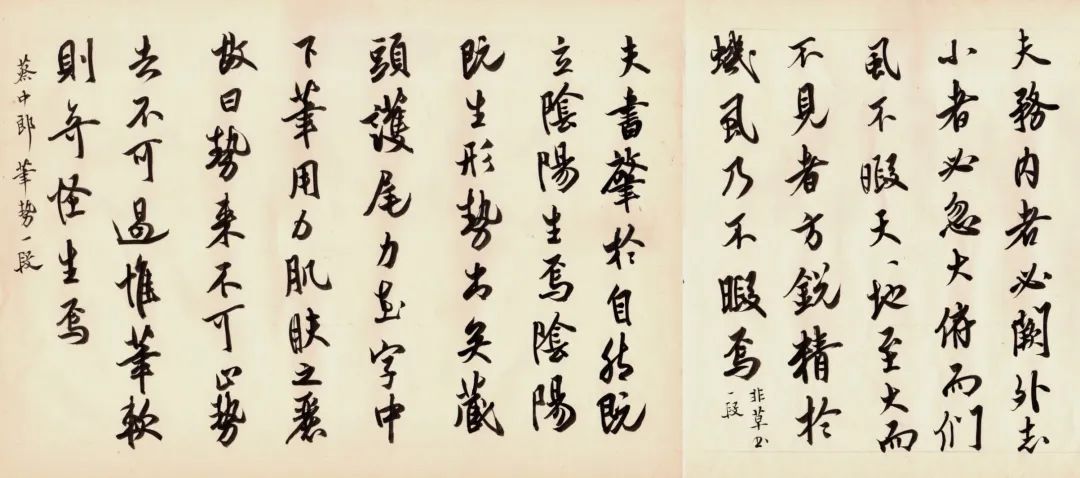 夫務内者必闕外志
小者必忽大俯而扪
虱不暇天地至大而
不見者方鋭精於
蟣虱乃不暇焉
非草书
一段
夫書肇於自然既
立陰陽生焉陰陽
既生形勢出矣藏
頭護尾力在字中
下筆用力肌肤之麗
故曰勢来不可止勢
去不可遏惟筆軟
則奇怪生焉
蔡中郎 筆勢一段